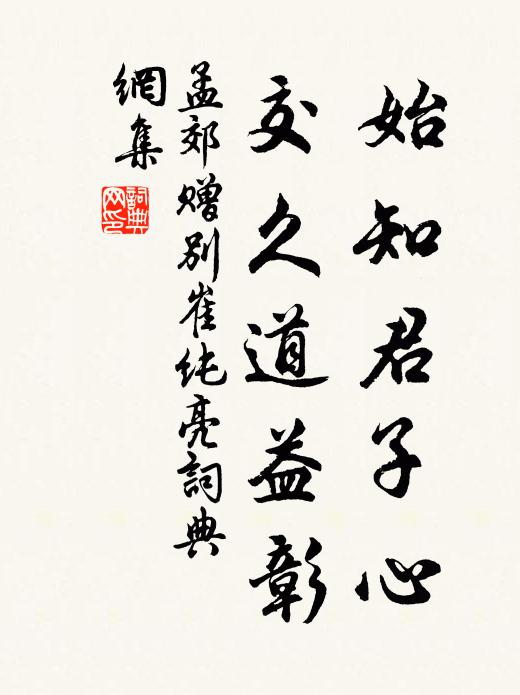 始知君子心
交久道益彰
孟郊赠别崔纯亮詞典
網集
詞典网印